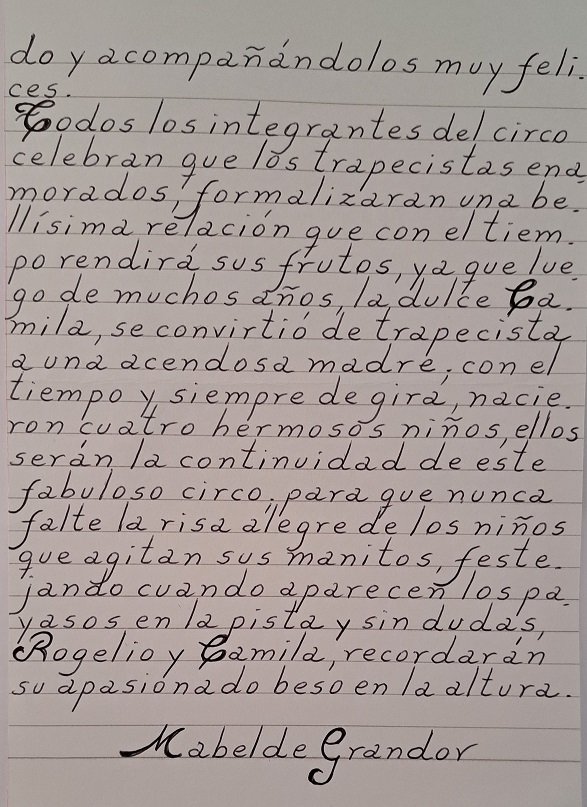 do y acompañándolos muy feli-
ces.
Todos los integrantes del circo
celebran que los trapecistas ena
morados, formalizaran una be-
llísima relación que con el tiem-
po rendirá sus frutos, ya que lue-
go de muchos años, la dulce Ca-
mila, se convirtió de trapecista
a una acendosa madre, con el
tiempo y siempre de gira, nacie-
ron cuatro hermosos niños, ellos
serán la continuidad de éste
fabuloso circo, para que nunca
falte la risa alegre de los niños
que agitan sus manitos, feste-
jando cuando aparecen los pa-
yasos en la pista y sin dudas,
Rogelio y Camila, recordarán
su apasionado beso en la altura.
Mabel de Grandor